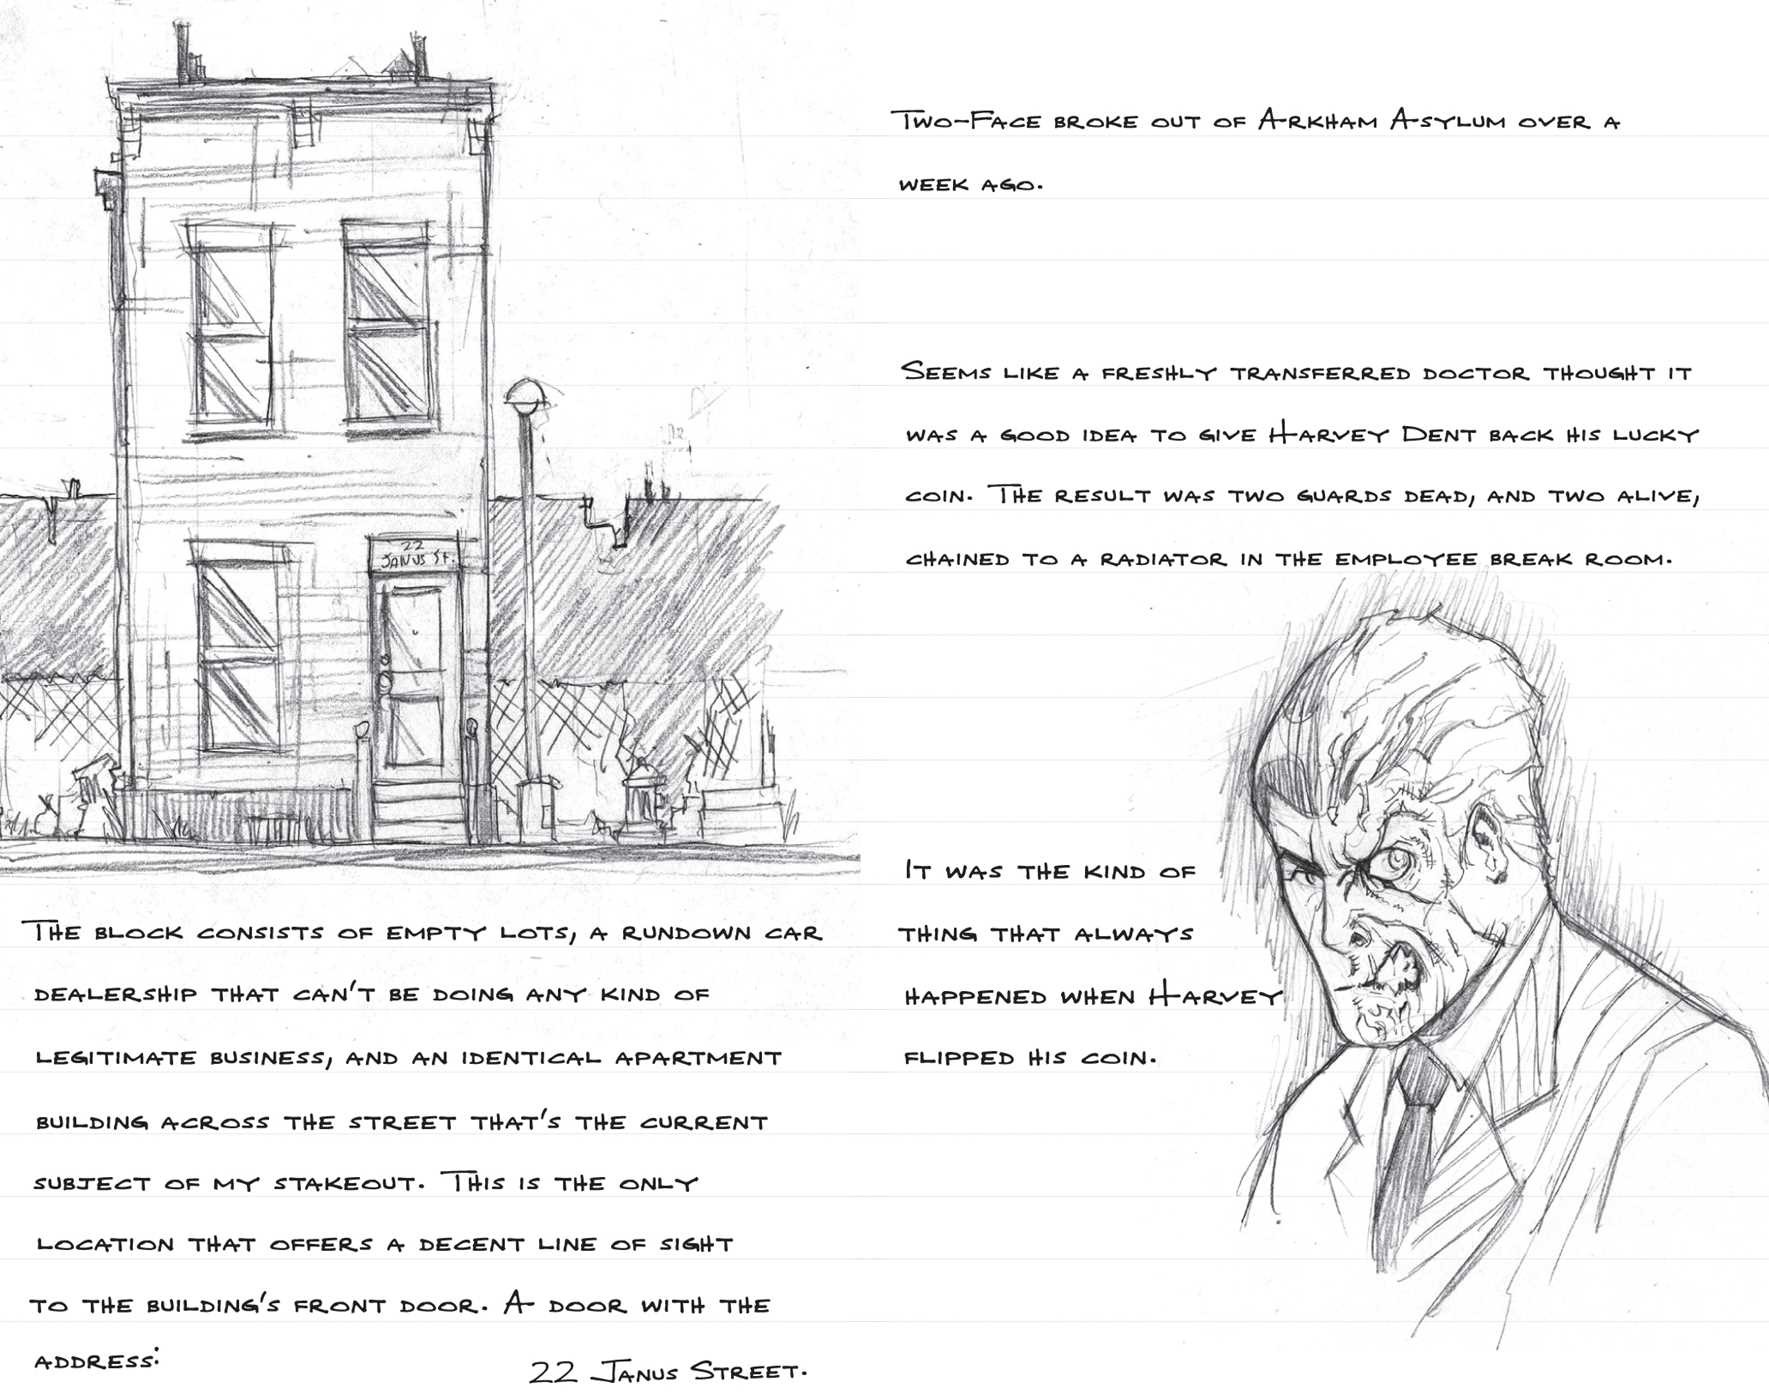 22
JANUS ST.
THE BLOCK CONSISTS OF EMPTY LOTS, A RUNDOWN CAR
DEALERSHIP THAT CAN'T BE DOING ANY KIND OF
LEGITIMATE BUSINESS, AND AN IDENTICAL APARTMENT
BUILDING ACROSS THE STREET THAT'S THE CURRENT
SUBJECT OF MY STAKEOUT. THIS IS THE ONLY
LOCATION THAT OFFERS A DECENT LINE OF SIGHT
TO THE BUILDING'S FRONT DOOR. A DOOR WITH THE
ADDRESS:
22 JANUS STREET.
TWO-FACE BROKE OUT OF ARKHAM ASYLUM OVER A
WEEK AGO.
SEEMS LIKE A FRESHLY TRANSFERRED DOCTOR THOUGHT IT
WAS A GOOD IDEA TO GIVE HARVEY DENT BACK HIS LUCKY
COIN. THE RESULT WAS TWO GUARDS DEAD, AND TWO ALIVE,
CHAINED TO A RADIATOR IN THE EMPLOYEE BREAK ROOM.
IT WAS THE KIND OF
THING THAT ALWAYS
HAPPENED WHEN HARVEY
FLIPPED HIS COIN.